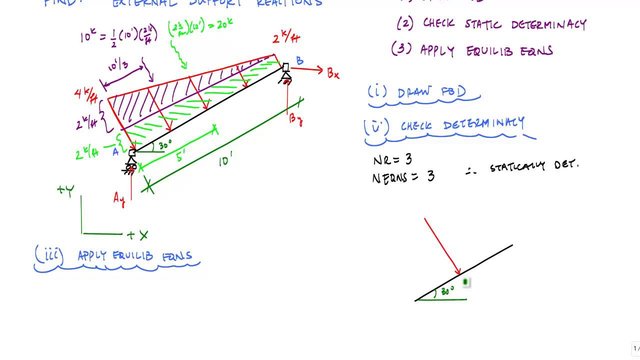 FIND: EXTERNAL SUPPORT REACTIONS
(2) CHECK STATIC DETERMINACY
(3) APPLY EQUILIB EQNS
10ᵏ = ½ (10') (2k/ft)
(2k/ft)(10') = 20ᵏ
2 k/ft
10'/3
B
Bx
4 k/ft
2 k/ft
By
2 k/ft
A
30°
5'
10'
Ay
+Y
+X
(i) DRAW FBD
(ii) CHECK DETERMINACY
NR = 3
NEQNS = 3 ∴ STATICALLY DET.
(iii) APPLY EQUILIB EQNS
30°